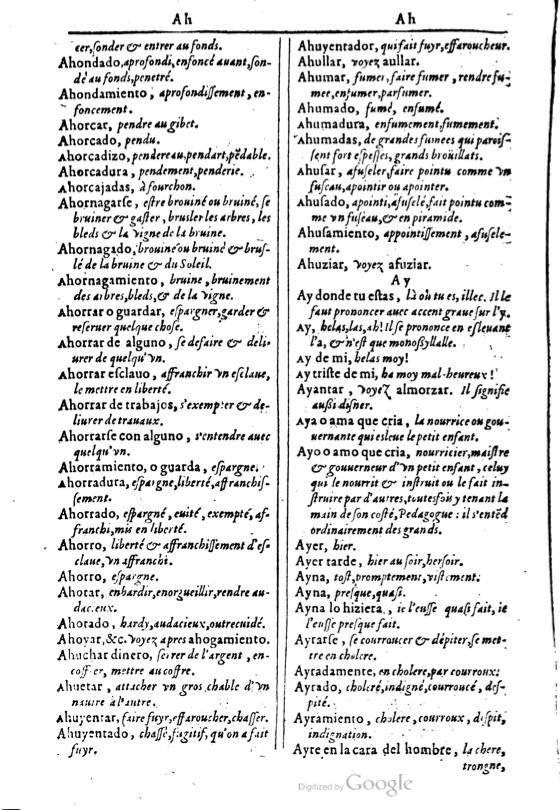 Ah
cer, ſonder & entrer au fonds.
Ahondado, aprofondi, enfoncé auant, ſon-
dé au fonds, penetré.
Ahondamiento, aprofondiſſement, en-
foncement.
Ahorcar, pendre au gibet.
Ahorcado, pendu.
Ahorcadizo, pendereau, pendart, pēdable.
Ahorcadura, pendement, penderie.
Ahorcajadas, à fourchon.
Ahornagarſe, eſtre brouiné ou bruiné, ſe
bruiner & gaſter, bruſler les arbres, les
bleds & la vigne de la bruine.
Ahornagado, brouiné ou bruiné & bruſ-
lé de la bruine & du Soleil.
Ahornagamiento, bruine, bruinement
des arbres, bleds, & de la vigne.
Ahorrar o guardar, eſpargner, garder &
reſeruer quelque choſe.
Ahorrar de alguno, ſe defaire & deli-
urer de quelqu'vn.
Ahorrar eſclauo, affranchir vn eſclaue,
le mettre en liberté.
Ahorrar de trabajos, s'exempter & de-
liurer de trauaux.
Ahorrarſe con alguno, s'entendre auec
quelqu'vn.
Ahorramiento, o guarda, eſpargne.
Ahorradura, eſpargne, liberté, affranchiſ-
ſement.
Ahorrado, eſpargné, euité, exempté, af-
franchi, mis en liberté.
Ahorro, liberté & affranchiſſement d'eſ-
claue, vn affranchi.
Ahorro, eſpargne.
Ahotar, enhardir, enorgueillir, rendre au-
dacieux.
Ahotado, hardy, audacieux, outrecuidé.
Ahoyar, &c. voyez apres ahogamiento.
Ahuchar dinero, ſerrer de l'argent, en-
coffrer, mettre au coffre.
Ahuetar, attacher vn gros chable d'vn
nauire à l'autre.
Ahuyentar, faire fuyr, effaroucher, chaſſer.
Ahuyentado, chaſſé, fugitif, qu'on a fait
fuyr.
Ah
Ahuyentador, qui fait fuyr, effaroucheur.
Ahullar, voyez aullar.
Ahumar, fumer, faire fumer, rendre fu-
mee, enfumer, parfumer.
Ahumado, fumé, enfumé.
Ahumadura, enfumement, fumement.
Ahumadas, de grandes fumees qui paroiſ-
ſent fort eſpeſſes, grands brouillats.
Ahuſar, afuſeler, faire pointu comme vn
fuſeau, apointir ou apointer.
Ahuſado, apointi, afuſelé, fait pointu com-
me vn fuſeau, & en piramide.
Ahuſamiento, appointiſſement, afuſele-
ment.
Ahuziar, voyez afuziar.
Ay
Ay donde tu eſtas, là où tu es, illec. Il le
faut prononcer auec accent graue ſur l'y.
Ay, helas, las, ah! Il ſe prononce en eſleuant
l'a, & n'eſt que monoſyllalle.
Ay de mi, helas moy!
Ay triſte de mi, ha moy mal-heureux!
Ayantar, voyez almorzar. Il ſignifie
auſſi diſner.
Aya o ama que cria, la nourrice ou gou-
uernante qui eſleue le petit enfant.
Ayo o amo que cria, nourricier, maiſtre
& gouuerneur d'vn petit enfant, celuy
qui le nourrit & inſtruit ou le fait in-
ſtruire par d'autres, toutesfois y tenant la
main de ſon coſté, Pedagogue: il s'entēd
ordinairement des grands.
Ayer, hier.
Ayer tarde, hier au ſoir, herſoir.
Ayna, toſt, promptement, viſtement.
Ayna, preſque, quaſi.
Ayna lo hiziera, ie l'euſſe quaſi fait, ie
l'euſſe preſque fait.
Ayrarſe, ſe courroucer & dépiter, ſe met-
tre en cholere.
Ayradamente, en cholere, par courroux.
Ayrado, choleré, indigné, courroucé, deſ-
pité.
Ayramiento, cholere, courroux, deſpit,
indignation.
Ayre en la cara del hombre, la chere,
trongne,
Digitized by Google